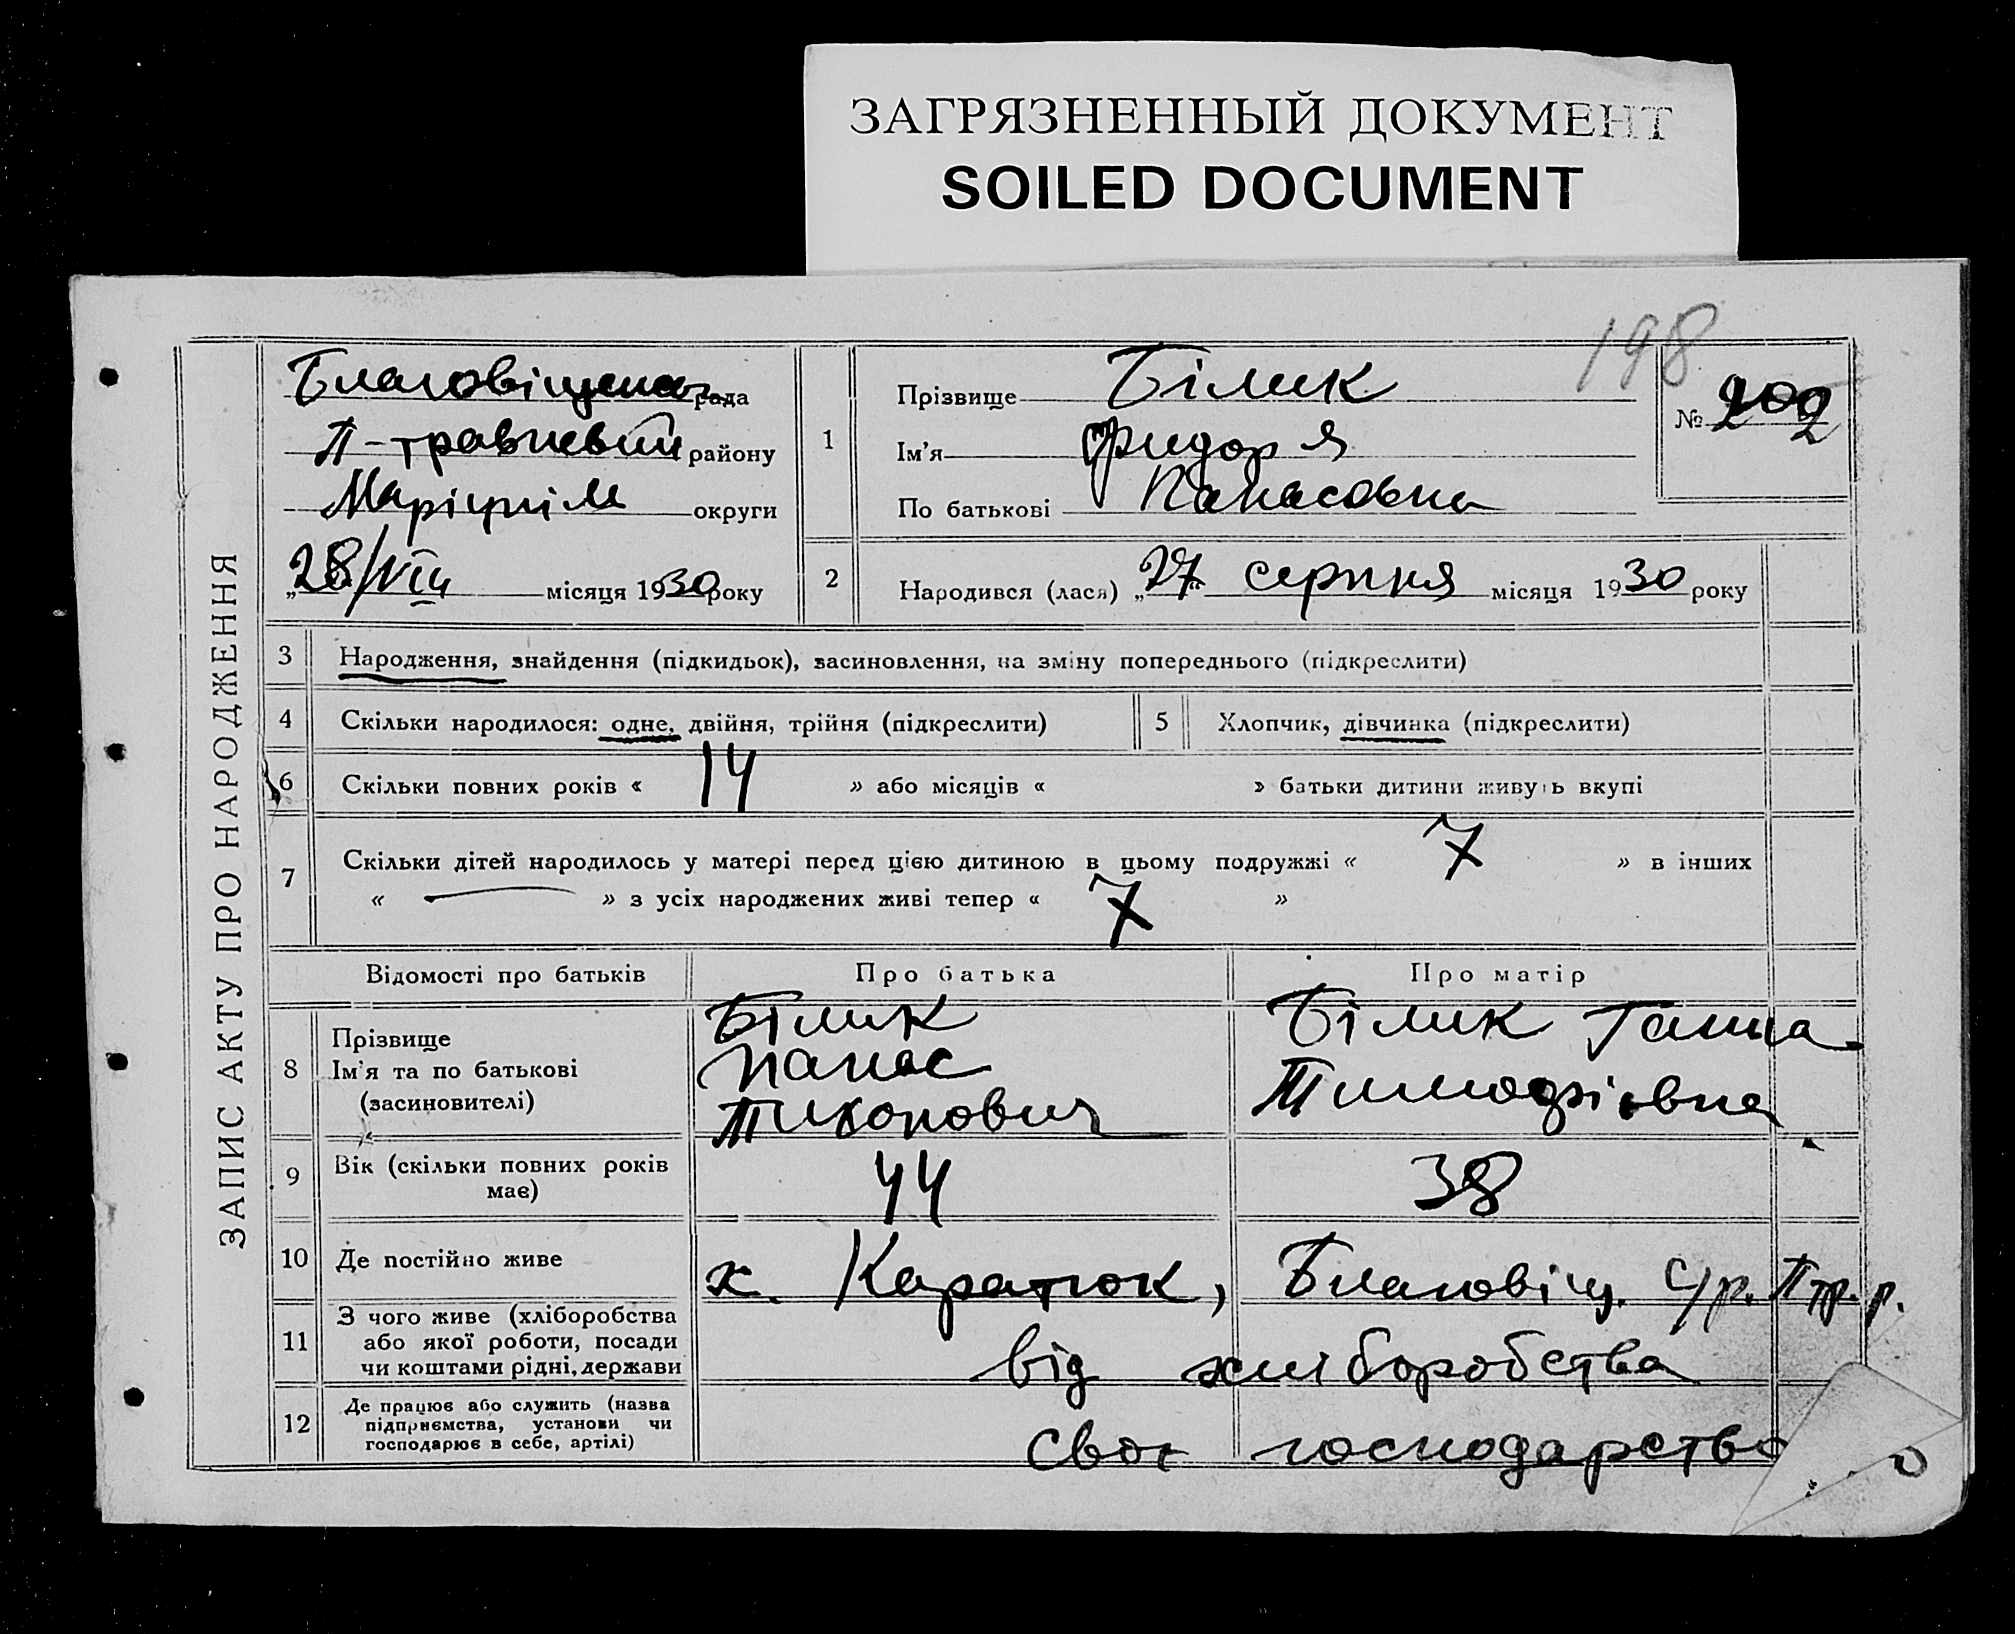 ЗАГРЯЗНЕННЫЙ ДОКУМЕНТ
SOILED DOCUMENT
198
ЗАПИС АКТУ ПРО НАРОДЖЕННЯ
Благовіщенс рада
П-травневий району
Маріупіл округи
„28/VIII місяця 1930 року
1
Прізвище Білик
Ім'я Фидора
По батькові Панасовна
№ 202
2 Народився (лася) „27“ серпня місяця 1930 року
3 Народження, знайдення (підкидьок), засиновлення, на зміну попереднього (підкреслити)
4 Скільки народилося: одне, двійня, трійня (підкреслити) 5 Хлопчик, дівчинка (підкреслити)
6 Скільки повних років « 14 » або місяців « » батьки дитини живуть вкупі
7 Скільки дітей народилось у матері перед цією дитиною в цьому подружжі « 7 » в інших
« — » з усіх народжених живі тепер « 7 »
Відомості про батьків Про батька Про матір
8 Прізвище Білик Білик Ганна
Ім'я та по батькові Панас Тимофіівна
(засиновителі) Тихонович
9 Вік (скільки повних років 44 38
має)
10 Де постійно живе х. Каратюк, Благовіщ. С/р. Птр. р.
11 З чого живе (хліборобства
або якої роботи, посади від хліборобства
чи коштами рідні, держави
12 Де працює або служить (назва
підприємства, установи чи своє господарство
господарює в себе, артілі)